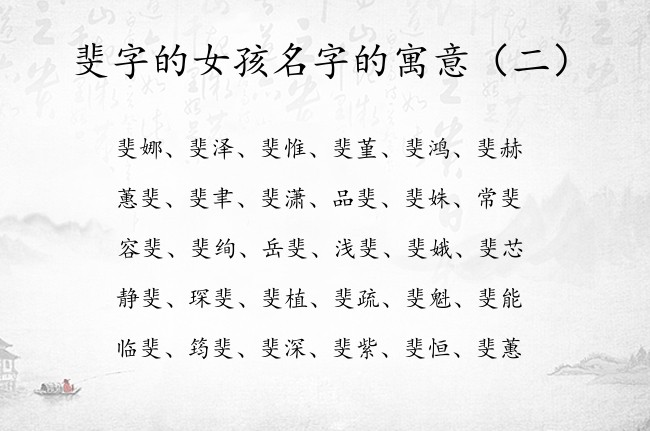 斐字的女孩名字的寓意（二）
斐娜、斐泽、斐惟、斐堇、斐鸿、斐赫
蕙斐、斐聿、斐潇、品斐、斐姝、常斐
容斐、斐绚、岳斐、浅斐、斐娥、斐芯
静斐、琛斐、斐植、斐疏、斐魁、斐能
临斐、筠斐、斐深、斐紫、斐恒、斐蕙